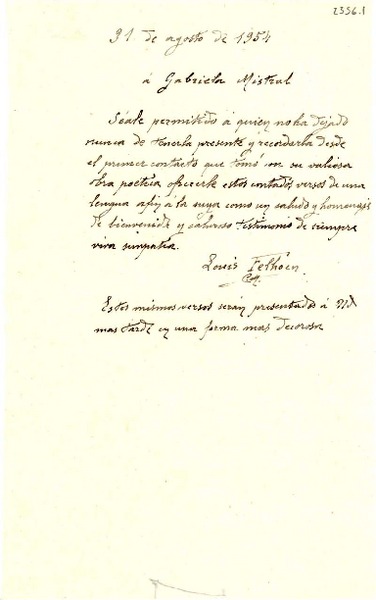 2356.1
31 de agosto de 1954
á Gabriela Mistral
Séale permitido á quien no ha dejado
nunca de tenerla presente y recordarla desde
el primer contacto que tomó con su valiosa
obra poética ofrecerle estos contados versos de una
lengua afín á la suya como un saludo y homenaje
de bienvenida y caluroso testimonio de siempre
viva simpatía.
Louis Felhöen
Estos mismos versos serán presentados á Ud
mas tarde en una forma mas decorosa